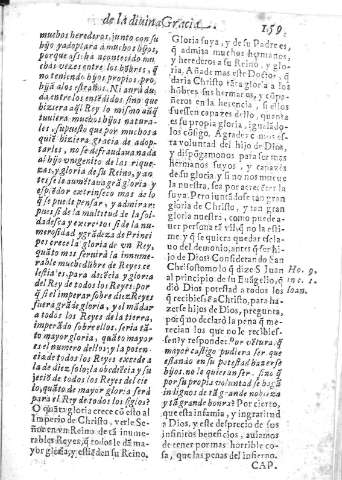 de la diuina Gracia.
159
muchos herederos, junto con su
hijo yadoptara à muchos hijos,
porque assi ha acontecido mu-
chas vezes entre los hõbres, q̃
no teniendo hijos propios, pro-
hijã a los estraños. Ni an ri du-
da, entre los entẽdidos, sino que
hiziera aq̃l Rey lo mismo aunq̃
tuuiera muchos hijos natura-
les, supuesto que por muchos a
quiẽ hiziera gracia de adop-
tarlos, no se defraudaua nada
al hijo vnigenito de las rique-
zas, y gloria de su Reino, y an
tes se le aumẽtaua grã gloria y
esplẽdor extrinseco mas de lo
que se puede pensar, y admirar:
pues si de la multitud de los sol-
dados
numerosidad y grãdeza de Princi
pes crece la gloria de vn Rey,
quãto mas seruirà la innume-
rable muchedũbre de Reyes ce
lestiales para dilecta y gloria
del Rey de todos los Reyes: por
q̃ si el imperar sobre diez Reyes
fuera grã de gloria, y el mãdar
a todos los Reyes de la tierra,
imperãdo sobre ellos, seria tã-
to mayor gloria, quãto mayor
es el numero dellos: y la poten-
cia de todos los Reyes excede a
la de diez solo; la obediẽcia y su
jeciõ de todos los Reyes del cie
lo, quãto de mayor gloria serà
para el Rey de todos los siglos?
O quãta gloria crece cõ esto al
Imperio de Christo, verle Se-
ñor en vn Reino de tã innume-
rables Reyes, q̃ todos le dã ma-
yor gloria, y estiẽden su Reino,
Gloria suya, y de su Padre es,
q̃ admita muchos hermanos,
y herederos a su Reino, y glo-
ria. Añade mas este Doctor, q̃
daria Christo tãta gloria a los
hõbres sus hermanos, y cõpa-
ñeros en la herencia, si ellos
fuessen capazes dello, quanta
es su propia gloria, igualãdo-
los cõsigo. Agradezcamos es-
ta voluntad del hijo de Dios,
y dispõgamonos para ser mas
hermanos suyos, y capazes
de su gloria, y si no nos mueue
la nuestra, sea por acrecẽtar la
suya. Pero junta de ser tan gran
gloria de Christo, y tan gran
gloria nuestra, como puede a-
uer persona tã vil, q̃ no la esti-
me y q̃ se quiera quedar escla-
uo del demonio, antes q̃ ser hi-
jo de Dios? Considerando San
Chrisostomo lo q̃ dize S. Iuan
al principio de su Euãgelio, q̃
diò Dios potestad a todos los
q̃ recibiessẽ a Christo, para ha-
zerse hijos de Dios, pregunta,
porq̃ no declarò la pena q̃ me-
recian los que no le recibies-
sen? y responde: Por vẽtura. q̃
mayor castigo pudiera ser que
estando en su potestad hazerse
hijos, no le quieran ser, sino q̃
por su propia voluntad se hagã
indignos de tã grande nobleza
y tã grande bonra? Por cierto,
que esta infamia, y ingratitud
a Dios, y este desprecio de sus
infinitos beneficios, auiamos
de tener por mas horrible co-
sa, que las penas del infierno.
Ho. 9.
inc. 1.
Ioan.
CAP.